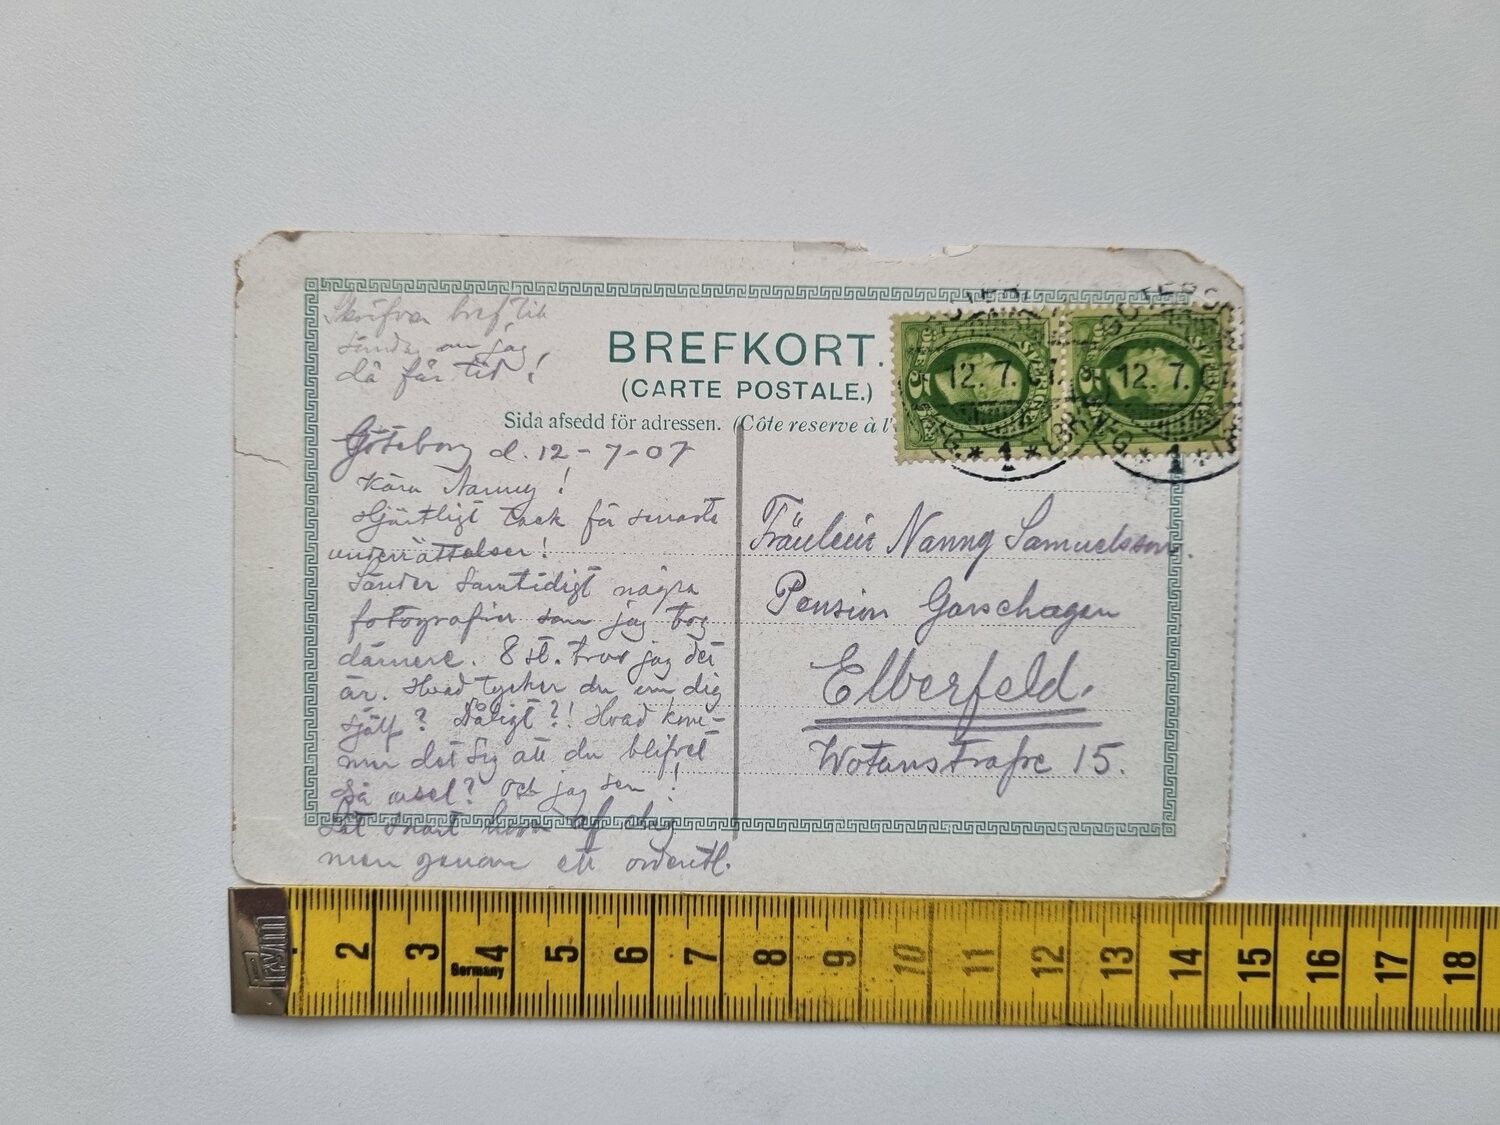 Skrifver bref till
söndag om jag
då får tid!
BREFKORT.
(CARTE POSTALE.)
Sida afsedd för adressen. (Côte reserve à l'
Göteborg d. 12-7-07
Kära Nanny!
Hjärtligt tack för senaste
underrättelser!
Sänder samtidigt några
fotografier som jag tog
därnere. 8 st. tror jag det
är. Hvad tycker du om dig
själf? Dåligt?! Hvad kom-
mer det sig att du blifvet
så? och jag sen!
Låt snart höra af dig
men genom ett ordentl.
5
12. 7.
5
12. 7. 7.
1
1
Fräulein Nanny Samuelsson.
Pension Garschagen
Elberfeld.
Wotanstraße 15.
2 3 4 5 6 7 8 9 10 11 12 13 14 15 16 17 18
Germany